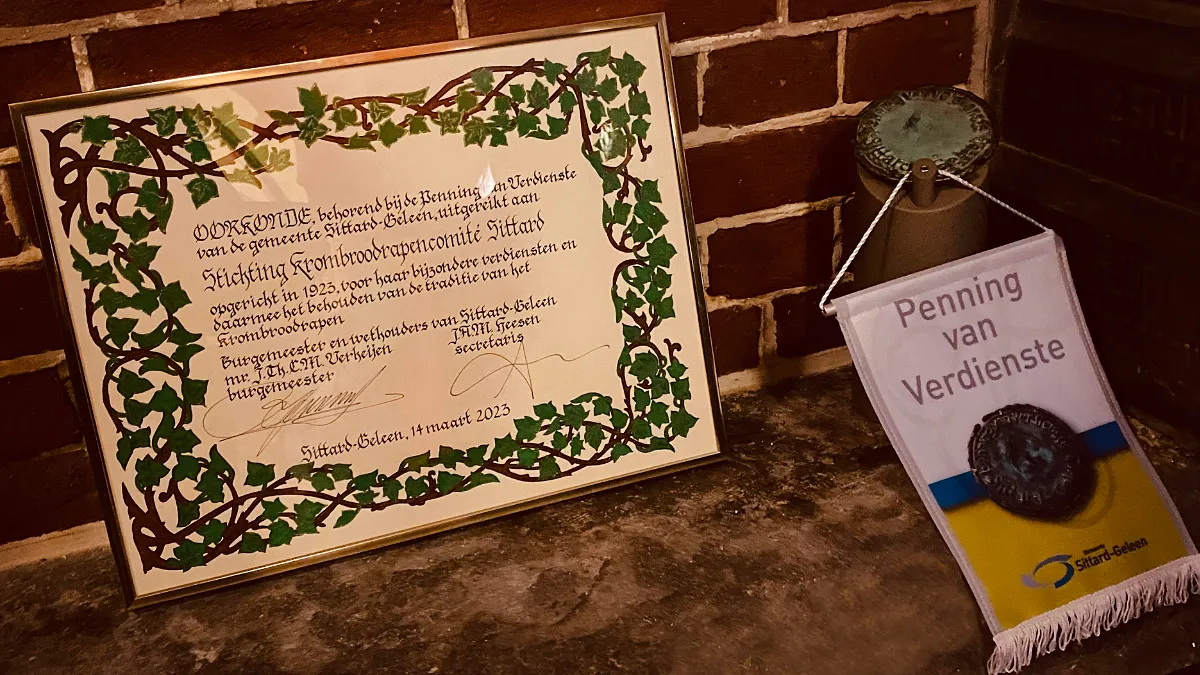 OORKONDE, behorend bij de Penning van Verdienste
van de gemeente Sittard-Geleen, uitgereikt aan
Stichting Krombroodrapencomité Sittard
opgericht in 1923, voor haar bijzondere verdiensten en
daarmee het behouden van de traditie van het
krombroodrapen
Burgemeester en wethouders van Sittard-Geleen
mr. J.Th.C.M. Verheijen
burgemeester
J.H.M. Heesen
secretaris
Sittard-Geleen, 14 maart 2023
Penning
van
Verdienste
Gemeente
Sittard-Geleen